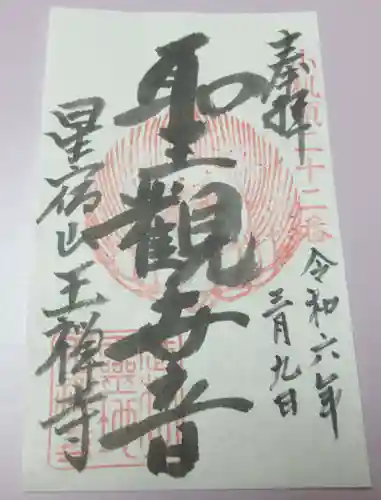 奉拝
令和六年
三月九日
聖観世音
星宿山王禅寺